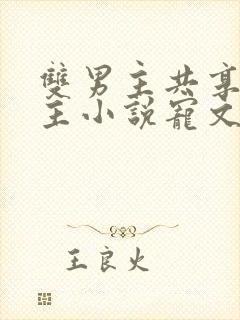 雙男主共享
主小說寵文
王良火